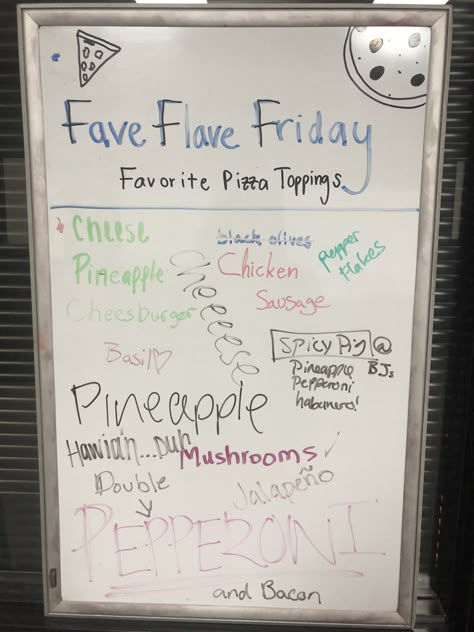 Fave Flave Friday
Favorite Pizza Toppings
Cheese
black olives
pepper flakes
Pineapple
Cheeeeese
Chicken
Cheesburger
Sausage
Basil♡
SPICY Pig @ BJs
Pineapple
Pepperoni
habanero!
Pineapple
Hawiian...duh
Mushrooms ✓
Double
Jalapeño
↓
PEPPERONI
and Bacon